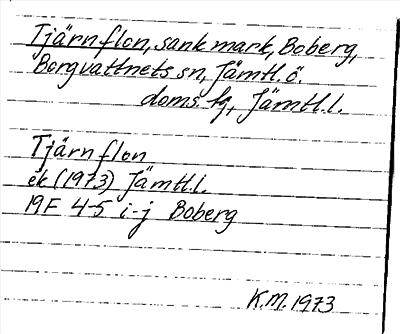 Tjärnflon, sank mark, Boberg,
Borgvattnets sn, Jämtl. ö.
doms. fg, Jämtl.l.
Tjärnflon
ek (1973) Jämtl.l.
19F 4-5 i-j Boberg
K.M. 1973